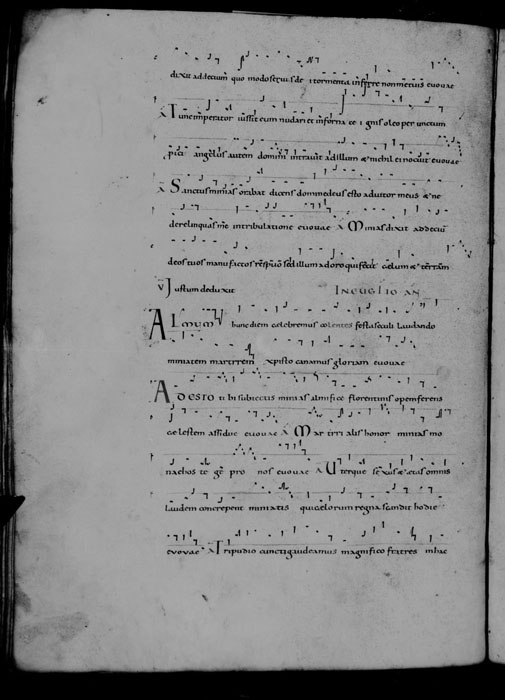 dixit ad decium quo modo sequis de i tormenta inferre non metuis euouae
A Tunc imperator iussit eum nudari et in fornace ignis oleo per unctum
pici angelus autem domini intrauit ad illum & nichil ei nocuit euouae
A Sanctus minias orabat dicens domine deus esto adiutor meus & ne
derelinquas me in tribulatione euouae A Minias dixit ad deciu
deos tuos manu factos respuo sed illum adoro qui fecit celum & terram
V Iustum deduxit IN EUGLIO AN
ALMUM hunc diem celebremus colentes festa seculi laudando
miniatem martirem xpisto canamus gloriam euouae
ADESTO tibi subiectis minias almifice florentinis opem ferens
celestem assidue euouae A Martirialis honor minias mo
nachos tege pro nos euouae A Uterque sexus & etas omnis
laudem concrepent miniatis qui celorum regna scandit hodie
euouae A Tripudio cuncti gaudeamus magnifico fratres in hac